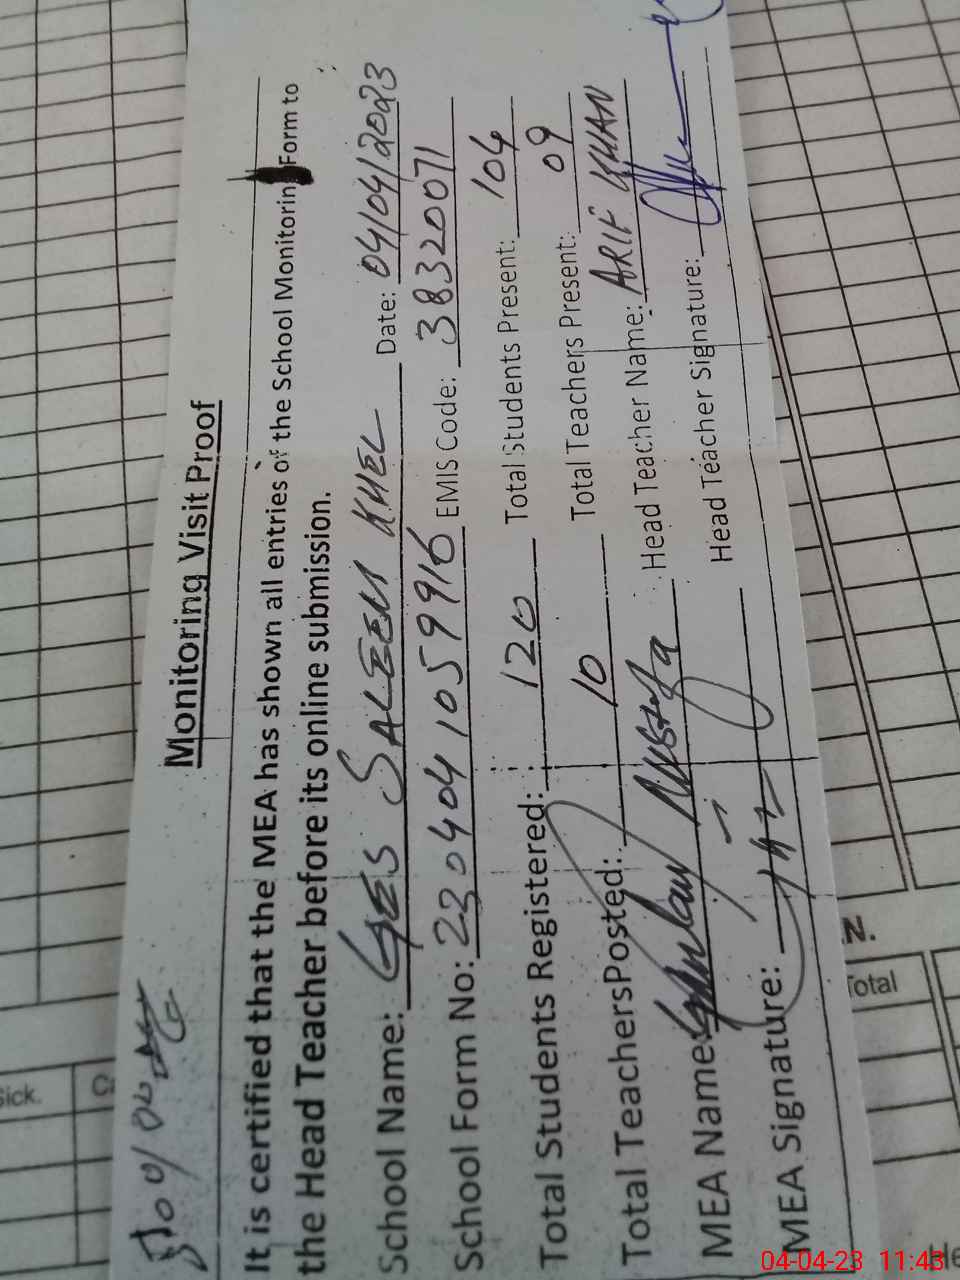 Monitoring Visit Proof
It is certified that the MEA has shown all entries of the School Monitorin Form to
the Head Teacher before its online submission.
School Name: GES SALEEM KHEL Date: 04/04/2023
School Form No: 230404 1059916 EMIS Code: 38320071
Total Students Registered: 120 Total Students Present: 104
Total TeachersPosted: 10 Total Teachers Present: 09
MEA Name: Head Teacher Name: ARIF KHAN
MEA Signature: Head Teacher Signature:
sick.
N.
Total
04-04-23 11:43